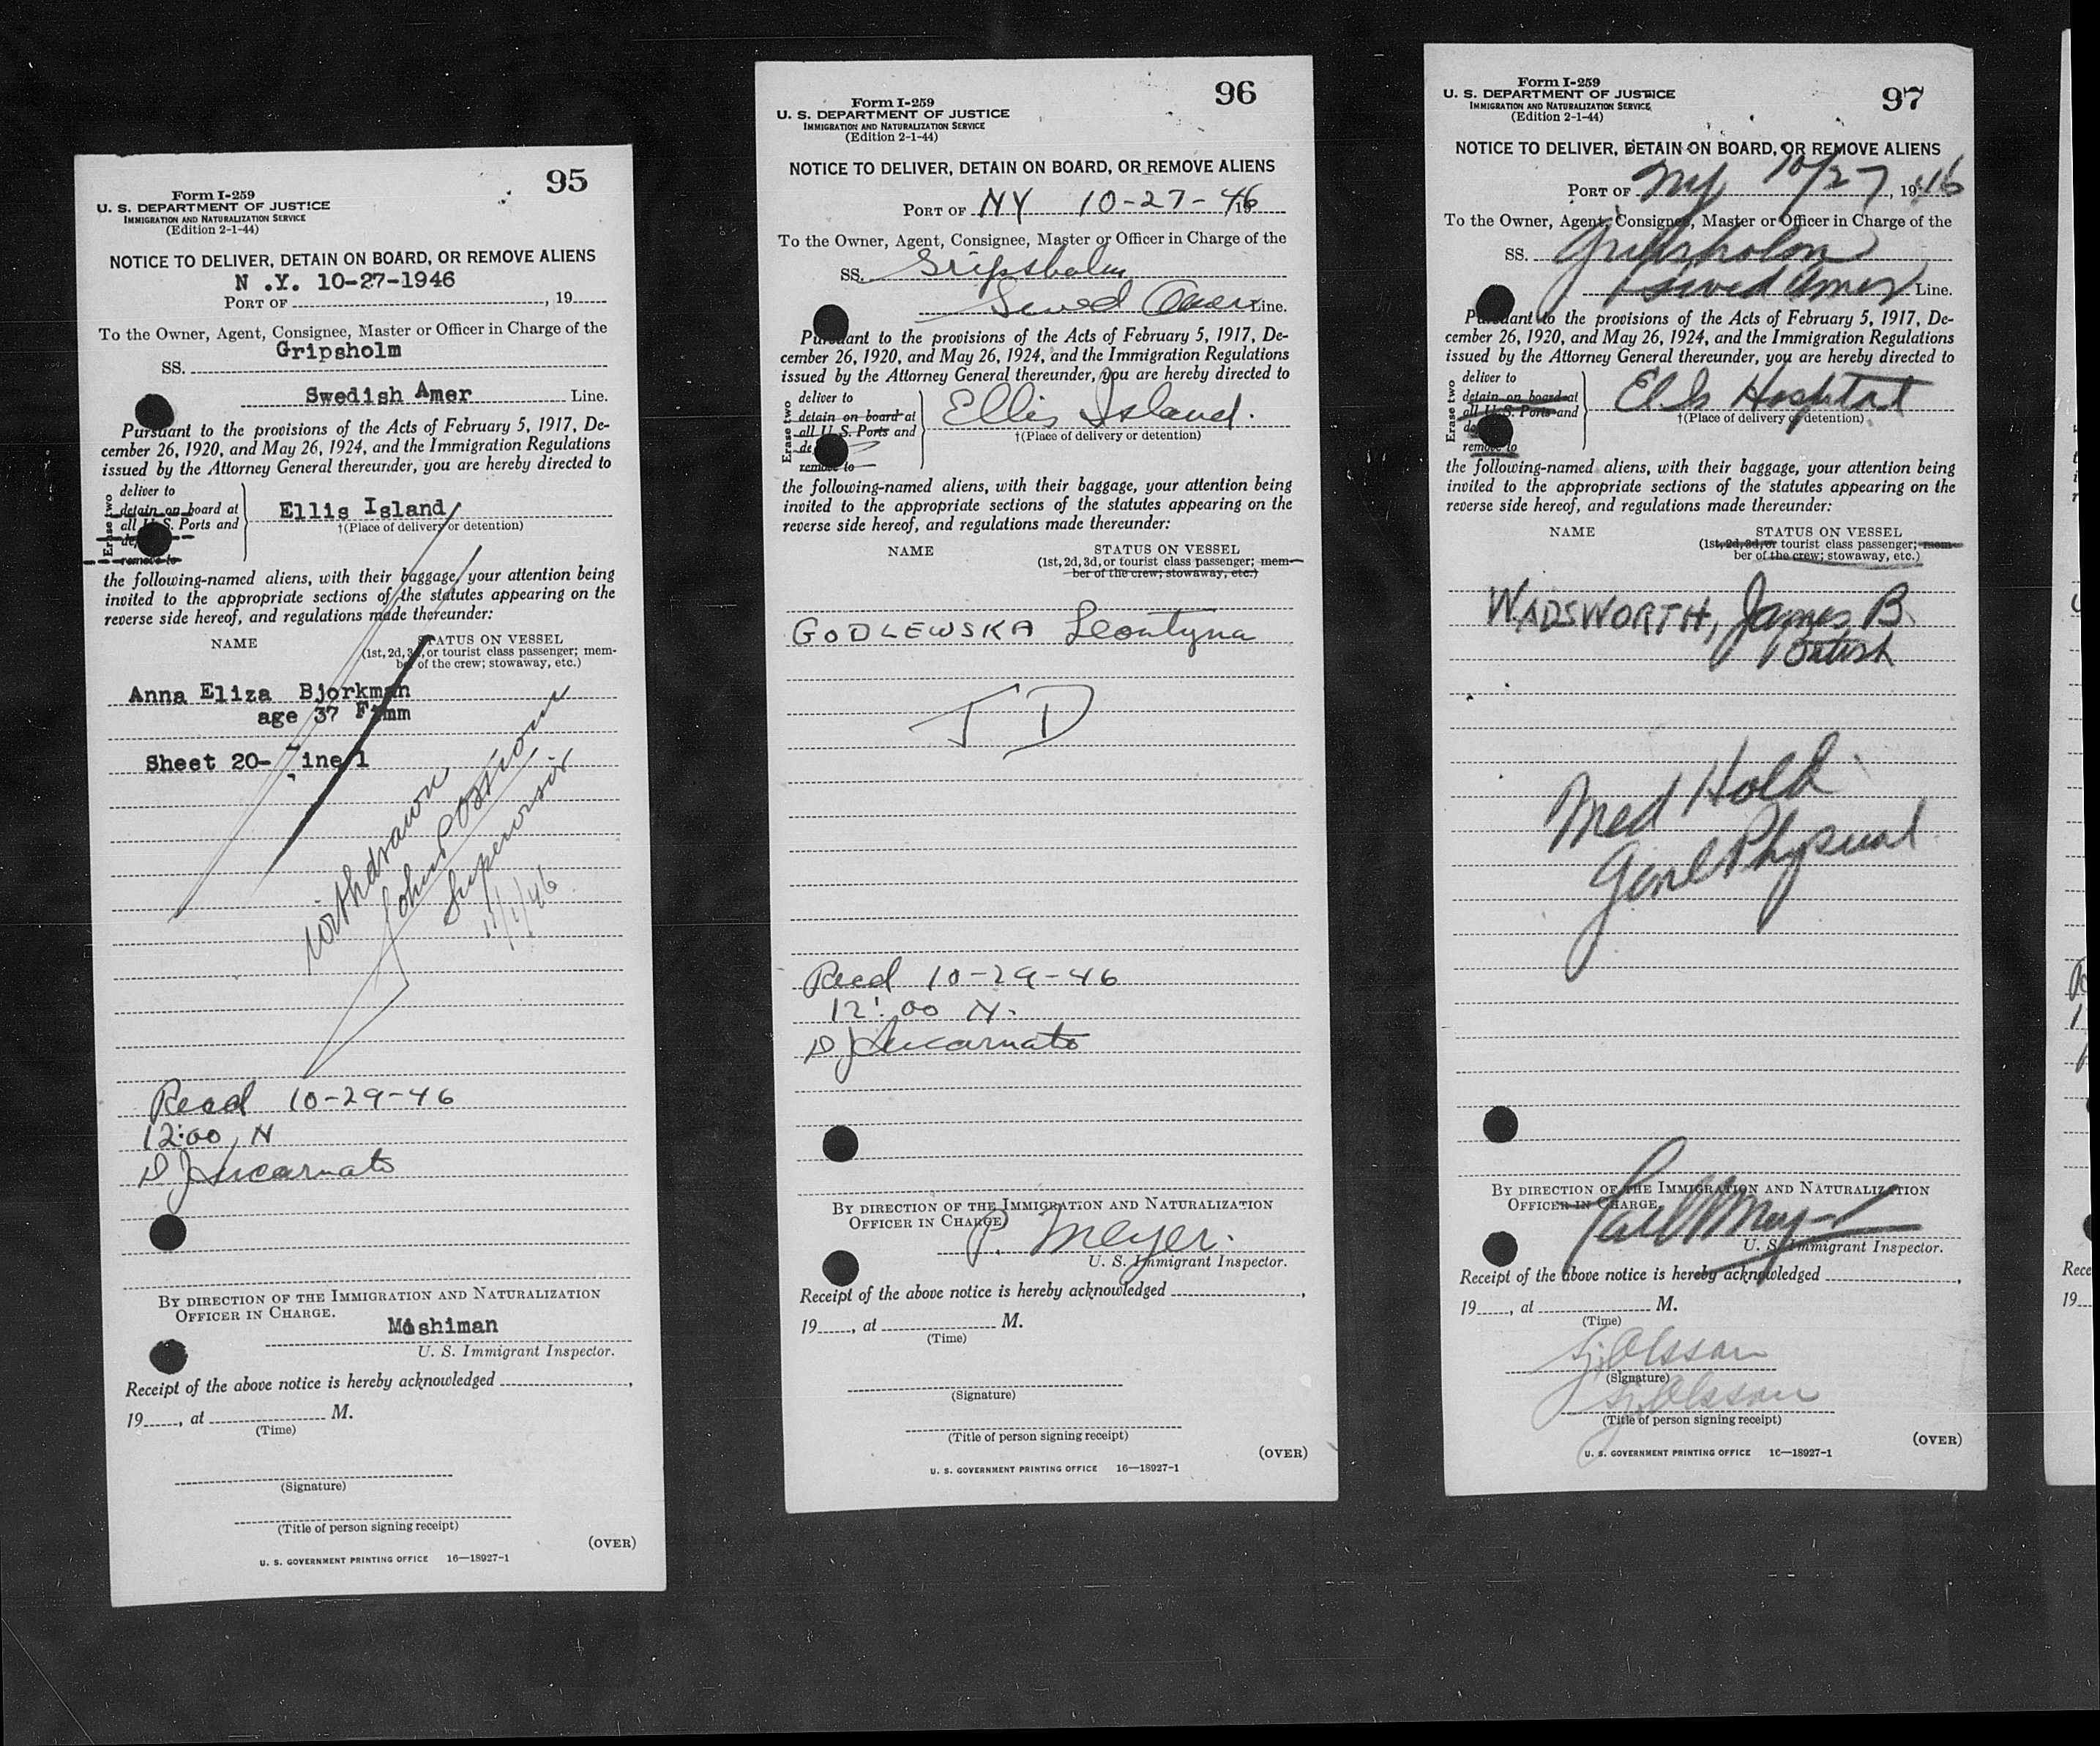 95
Form I-259
U. S. DEPARTMENT OF JUSTICE
IMMIGRATION AND NATURALIZATION SERVICE
(Edition 2-1-44)
NOTICE TO DELIVER, DETAIN ON BOARD, OR REMOVE ALIENS
N .Y. 10-27-1946
PORT OF , 19
To the Owner, Agent, Consignee, Master or Officer in Charge of the
Gripsholm
SS.
Swedish Amer Line.
Pursuant to the provisions of the Acts of February 5, 1917, De-
cember 26, 1920, and May 26, 1924, and the Immigration Regulations
issued by the Attorney General thereunder, you are hereby directed to
Erase two
deliver to
detain on board at
all U. S. Ports and
de
remove to
Ellis Island
†(Place of delivery or detention)
the following-named aliens, with their baggage, your attention being
invited to the appropriate sections of the statutes appearing on the
reverse side hereof, and regulations made thereunder:
NAME STATUS ON VESSEL
(1st, 2d, 3d, or tourist class passenger; mem-
ber of the crew; stowaway, etc.)
Anna Eliza Bjorkman
age 37 Finn
Sheet 20- ine 1
Withdrawn
John P
Supervisor
11/1/46
Recd 10-29-46
12:00 N
D J Incarnato
BY DIRECTION OF THE IMMIGRATION AND NATURALIZATION
OFFICER IN CHARGE.
Mishiman
U. S. Immigrant Inspector.
Receipt of the above notice is hereby acknowledged ,
19 , at M.
(Time)
(Signature)
(Title of person signing receipt)
(OVER)
U. S. GOVERNMENT PRINTING OFFICE 16—18927-1
96
Form I-259
U. S. DEPARTMENT OF JUSTICE
IMMIGRATION AND NATURALIZATION SERVICE
(Edition 2-1-44)
NOTICE TO DELIVER, DETAIN ON BOARD, OR REMOVE ALIENS
PORT OF NY 10-27-46
To the Owner, Agent, Consignee, Master or Officer in Charge of the
SS. Gripsholm
Swed Amer Line.
Pursuant to the provisions of the Acts of February 5, 1917, De-
cember 26, 1920, and May 26, 1924, and the Immigration Regulations
issued by the Attorney General thereunder, you are hereby directed to
Erase two
deliver to
detain on board at
all U. S. Ports and
de
remove to
Ellis Island.
†(Place of delivery or detention)
the following-named aliens, with their baggage, your attention being
invited to the appropriate sections of the statutes appearing on the
reverse side hereof, and regulations made thereunder:
NAME STATUS ON VESSEL
(1st, 2d, 3d, or tourist class passenger; mem-
ber of the crew; stowaway, etc.)
GODLEWSKA Leontyna
T D
Recd 10-29-46
12:00 N.
D J Incarnato
BY DIRECTION OF THE IMMIGRATION AND NATURALIZATION
OFFICER IN CHARGE.
P. Meyer.
U. S. Immigrant Inspector.
Receipt of the above notice is hereby acknowledged ,
19 , at M.
(Time)
(Signature)
(Title of person signing receipt)
(OVER)
U. S. GOVERNMENT PRINTING OFFICE 16—18927-1
97
Form I-259
U. S. DEPARTMENT OF JUSTICE
IMMIGRATION AND NATURALIZATION SERVICE
(Edition 2-1-44)
NOTICE TO DELIVER, DETAIN ON BOARD, OR REMOVE ALIENS
PORT OF NY 10/27, 1946
To the Owner, Agent, Consignee, Master or Officer in Charge of the
SS. Gripsholm
Swed Amer Line.
Pursuant to the provisions of the Acts of February 5, 1917, De-
cember 26, 1920, and May 26, 1924, and the Immigration Regulations
issued by the Attorney General thereunder, you are hereby directed to
Erase two
deliver to
detain on board at
all U. S. Ports and
de
remove to
Ells Hospital
†(Place of delivery or detention)
the following-named aliens, with their baggage, your attention being
invited to the appropriate sections of the statutes appearing on the
reverse side hereof, and regulations made thereunder:
NAME STATUS ON VESSEL
(1st, 2d, 3d, or tourist class passenger; mem-
ber of the crew; stowaway, etc.)
WADSWORTH, James B.
British
Med Hold
Genl Physical
BY DIRECTION OF THE IMMIGRATION AND NATURALIZATION
OFFICER IN CHARGE.
Paul Meyer
U. S. Immigrant Inspector.
Receipt of the above notice is hereby acknowledged ,
19 , at M.
(Time)
Sj. Olsson
(Signature)
Sj. Olsson
(Title of person signing receipt)
(OVER)
U. S. GOVERNMENT PRINTING OFFICE 16—18927-1
Rece
19